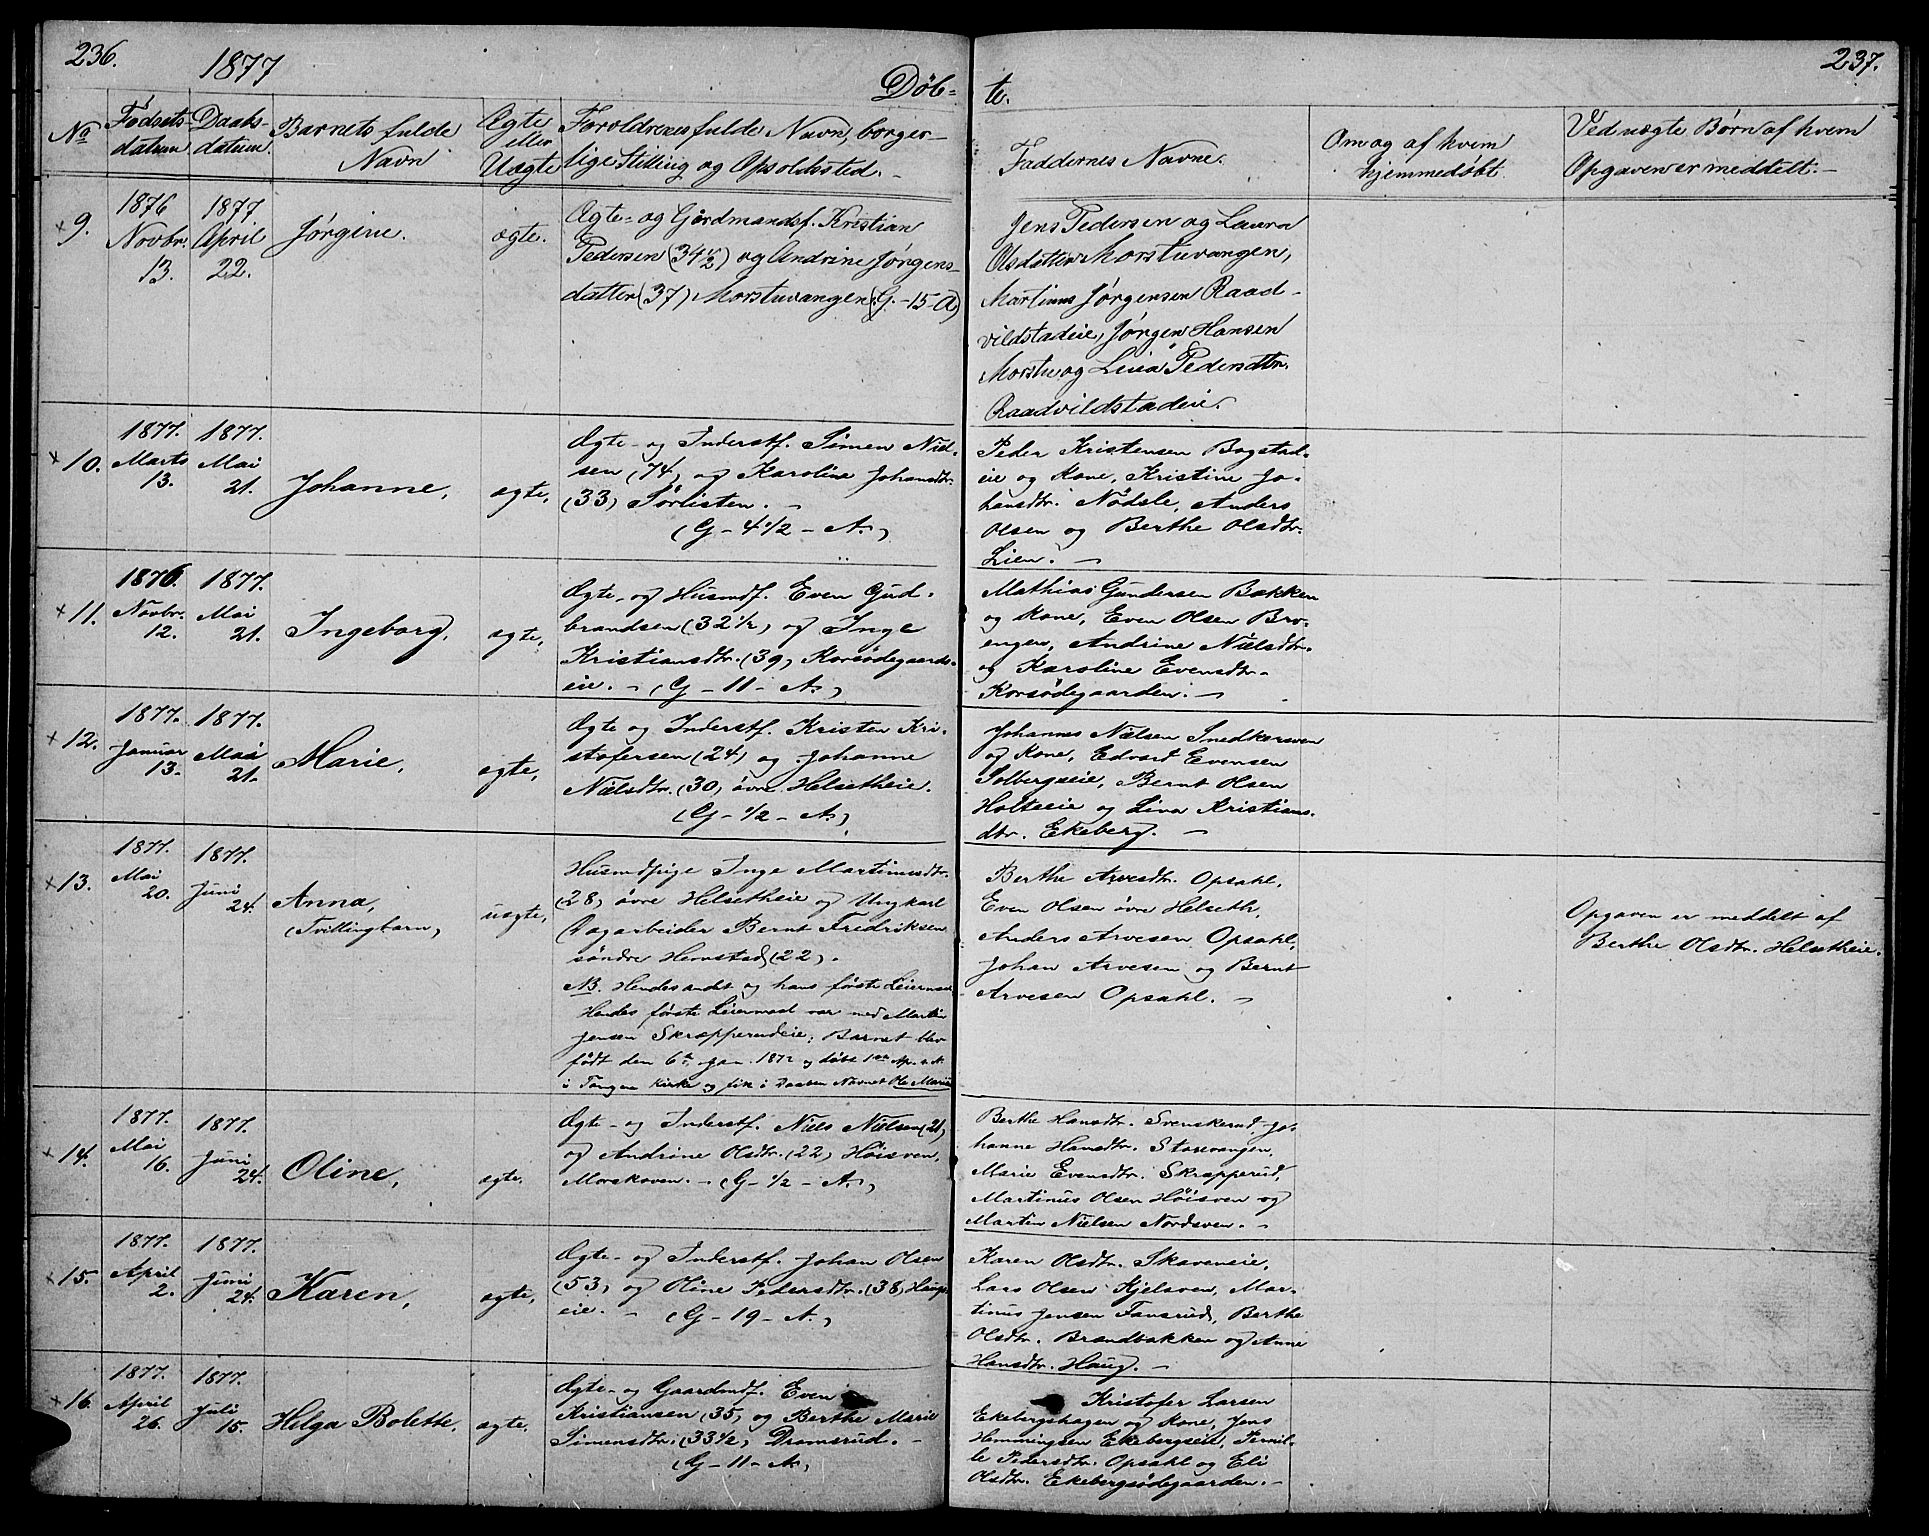 236.
1877
Døb-
te.
237.
No
Fødsels-
datum
Daabs-
datum.
Barnets fulde
Navn
Ægte
eller
Uægte
Forældrenes fulde Navn, borger-
lige Stilling og Opholdssted.
Faddernes Navne.
Om og af hvem
hjemmedøbt.
Ved uægte Børn af hvem
Opgaven er meddelt.
x 9.
1876
Novbr.
13.
1877
April
22.
Jørgine.
ægte.
Ægte- og Gårdmandsf. Kristian
Pedersen (34 1/2) og Andrine Jørgens-
datter (37) Morstuvangen (G.-15-A)
Jens Pedersen og Laura
Olsdatter Morstuvangen,
Martinus Jørgensen Raad-
vildstadeie, Jørgen Hansen
Morstu og Lina Pedersdtr.
Raadvildstadeie.
x 10.
1877.
Marts
13.
1877.
Mai
21.
Johanne,
ægte,
Ægte- og Inderstf. Simen Niel-
sen (74) og Karoline Johansdtr.
(33) Sørlisten.
(G - 4 1/2 - A.)
Peder Kristensen Bogstad-
eie og Kone, Kristine Jo-
hansdtr. Nødsle, Anders
Olsen og Berthe Olsdtr.
Lien.
x 11.
1876.
Novbr.
12.
1877.
Mai
21.
Ingeborg,
ægte,
Ægte- og Husmdf. Even Gud-
brandsen (32 1/2) og Inge
Kristiansdtr. (39) Korsødegaards-
eie. - (G - 11 - A.)
Mathias Gundersen Bakken
og Kone, Even Olsen Bro-
engen, Andrine Nielsdtr.
og Karoline Evensdtr.
Korsødegaarden.
x 12.
1877.
Januar
13.
1877.
Mai
21.
Marie,
ægte,
Ægte og Inderstf. Kristen Kri-
stofersen (24) og Johanne
Nielsdtr. (30) øvre Helsetheie.
(G - 1/2 - A.)
Johannes Nielsen Snedkersven
og Kone, Edvard Evensen
Solbergseie, Bernt Olsen
Holtseie og Lina Kristians-
dtr. Ekeberg.
x 13.
1877.
Mai
20.
1877.
Juni
24.
Anna,
(Tvillingbarn)
uægte,
Husmdpige Inge Martinusdtr.
(28) øvre Helsetheie og Ungkarl
Dagarbeider Bernt Fredriksen
søndre Hemstad (22).
NB. Hendes andet og hans første Leiermaal
Hendes første Leiermaal var med Martin
Jensen Skrapperudeie; Barnet blev
født den 6te Jan. 1872 og døbt 1ste Ap. s. A.
i Tangen Kirke og fik i Daaben Navnet Ole Marius
Berthe Arvesdtr. Opsahl,
Even Olsen øvre Helseth,
Anders Arvesen Opsahl,
Johan Arvesen og Bernt
Arvesen Opsahl.
Opgaven er meddelt af
Berthe Olsdtr. Helsetheie.
x 14.
1877.
Mai
16.
1877.
Juni
24.
Oline,
ægte.
Ægte- og Inderstf. Niels Nielsen (21)
og Andrine Olsdtr. (22) Høisven,
Morskoven. - (G - 1/2 - A.)
Berthe Hansdtr. Svenskerud, Jo-
hanne Hansdtr. Storvangen,
Marie Evensdtr. Skrapperud,
Martinus Olsen Høisven og
Martin Nielsen Nordsven.
x 15.
1877.
April
2.
1877.
Juni
24.
Karen,
ægte,
Ægte- og Inderstf. Johan Olsen
(53) og Oline Pedersdtr. (38) Haugs-
eie. - (G - 19 - A.)
Karen Olsdtr. Skaveneie,
Lars Olsen Kjelsven, Mar-
tinus Jensen Fansrud, Berthe
Olsdtr. Brandbakken og Anne
Hansdtr. Haug.
x 16.
1877.
April
26.
1877.
Juli
15.
Helga Bolette,
ægte.
Ægte- og Gaardmdf. Even
Kristiansen (35) og Berthe Marie
Simensdtr. (33 1/2) Dramsrud.
(G - 11 - A.)
Kristofer Larsen
Ekebergshagen og Kone, Jens
Hemmingsen Ekebergseie, Pernil-
le Pedersdtr. Opsahl og Eli
Olsdtr. Ekebergsødegaarden.